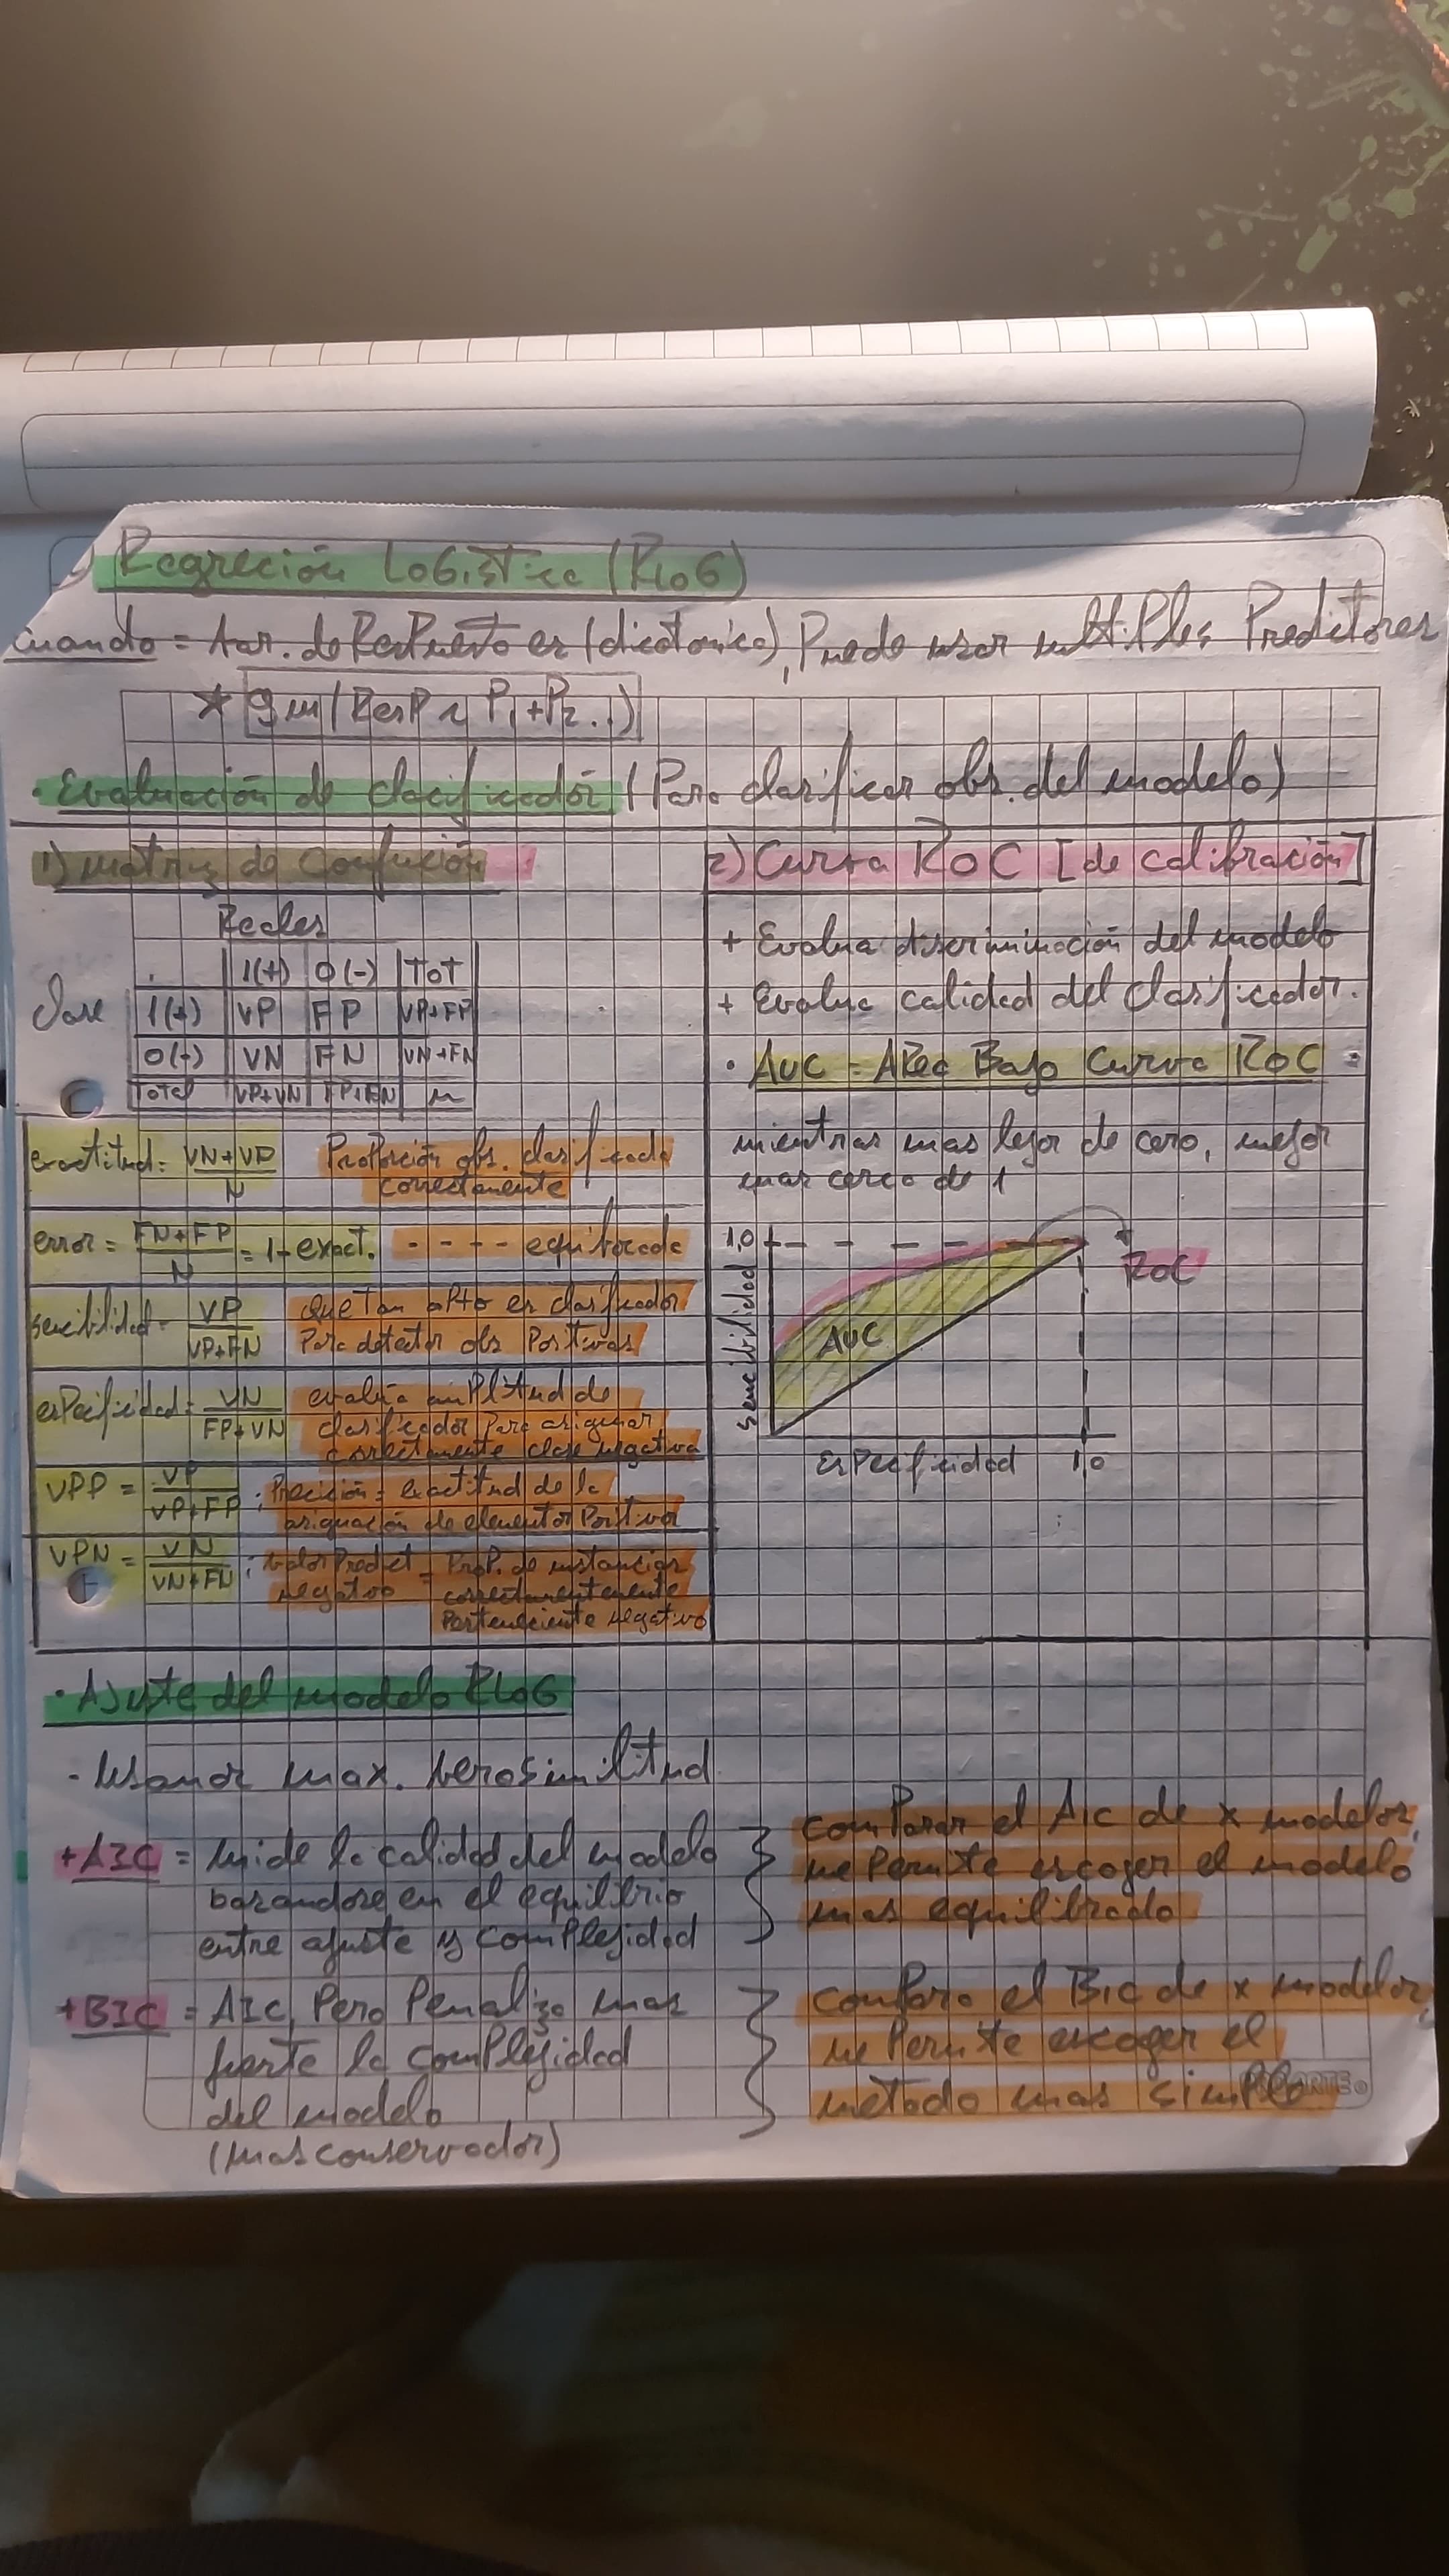 Regreción Logística (RLOG)
cuando = Var. de Respuesta es (dicotomica), Puede usar multiples Preditores
* glm(Resp ~ P1+P2..)
· Evaluación de clacificador (Para clasificar obs. del modelo)
1) matriz de Confución
Reales
1(+) 0(-) TOT
clase 1(+) VP FP VP+FP
0(-) VN FN VN+FN
Total VP+VN FP+FN n
exactitud = VN+VP / N Proporción obs. clasificada
correctamente
error = FN+FP / N = 1-exact. - - - - equibocada
sencibilidad = VP / VP+FN que tan apto es clasificador
Para detectar obs Positivas
especificidad = VN / FP+VN evalua amplitud de
clasificador para asignar
correctamente clase negativa
VPP = VP / VP+FP : Precición = exactitud de la
asignación de elementos Positivos
VPN = VN / VN+FN : valor Predict negativo = Prop. de instancias
correctamentemente
Perteneciente negativo
2) Curva ROC [de calibración]
+ Evalua discriminación del modelo
+ Evalua calidad del clasificador.
· AUC = AREA Bajo Curva ROC
mientras mas lejor de cero, mejor
mas cerca de 1
1,0
ROC
sencibilidad
AUC
Especificidad 1,0
· Ajuste del modelo RLOG
- Usamor max. berosimilitud
+AIC = mide la calidad del modelo
basandose en el equilibrio
entre ajuste y complejidad
comparar el AIC de x modelos,
me permite escoger el modelo
mas equilibrado
+BIC = AIC, Pero Penaliza mas
fuerte la complejidad
del modelo
(mas conservador)
comparo el BIC de x modelos,
me Permite escoger el
metodo mas simple